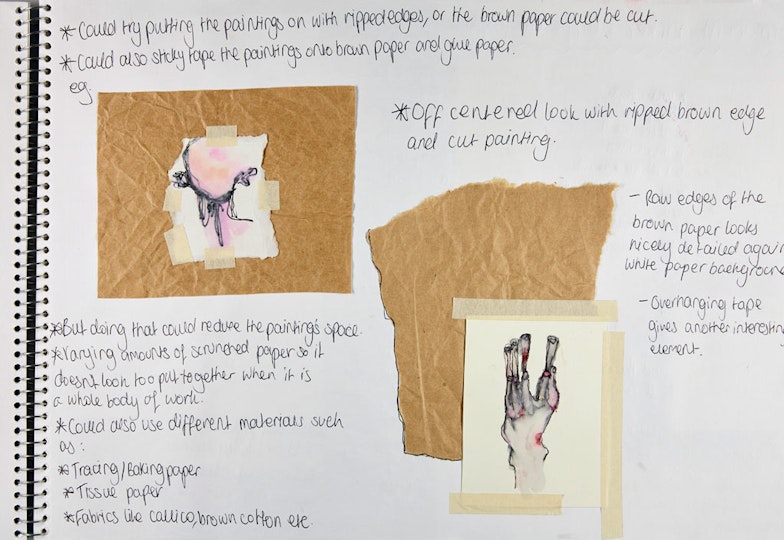 *Could try putting the paintings on with ripped edges, or the brown paper could be cut.
*Could also sticky tape the paintings onto brown paper and glue paper.
eg.
*Off centered look with ripped brown edge
and cut painting.
- Raw edges of the
brown paper looks
nicely detailed again
white paper background
- Overhanging tape
gives another interesting
element.
*But doing that could reduce the painting's space.
*Varying amounts of scrunched paper so it
doesn't look too put together when it is
a whole body of work.
*Could also use different materials such
as:
*Tracing/Baking paper
*Tissue paper
*Fabrics like callico, brown cotton etc.